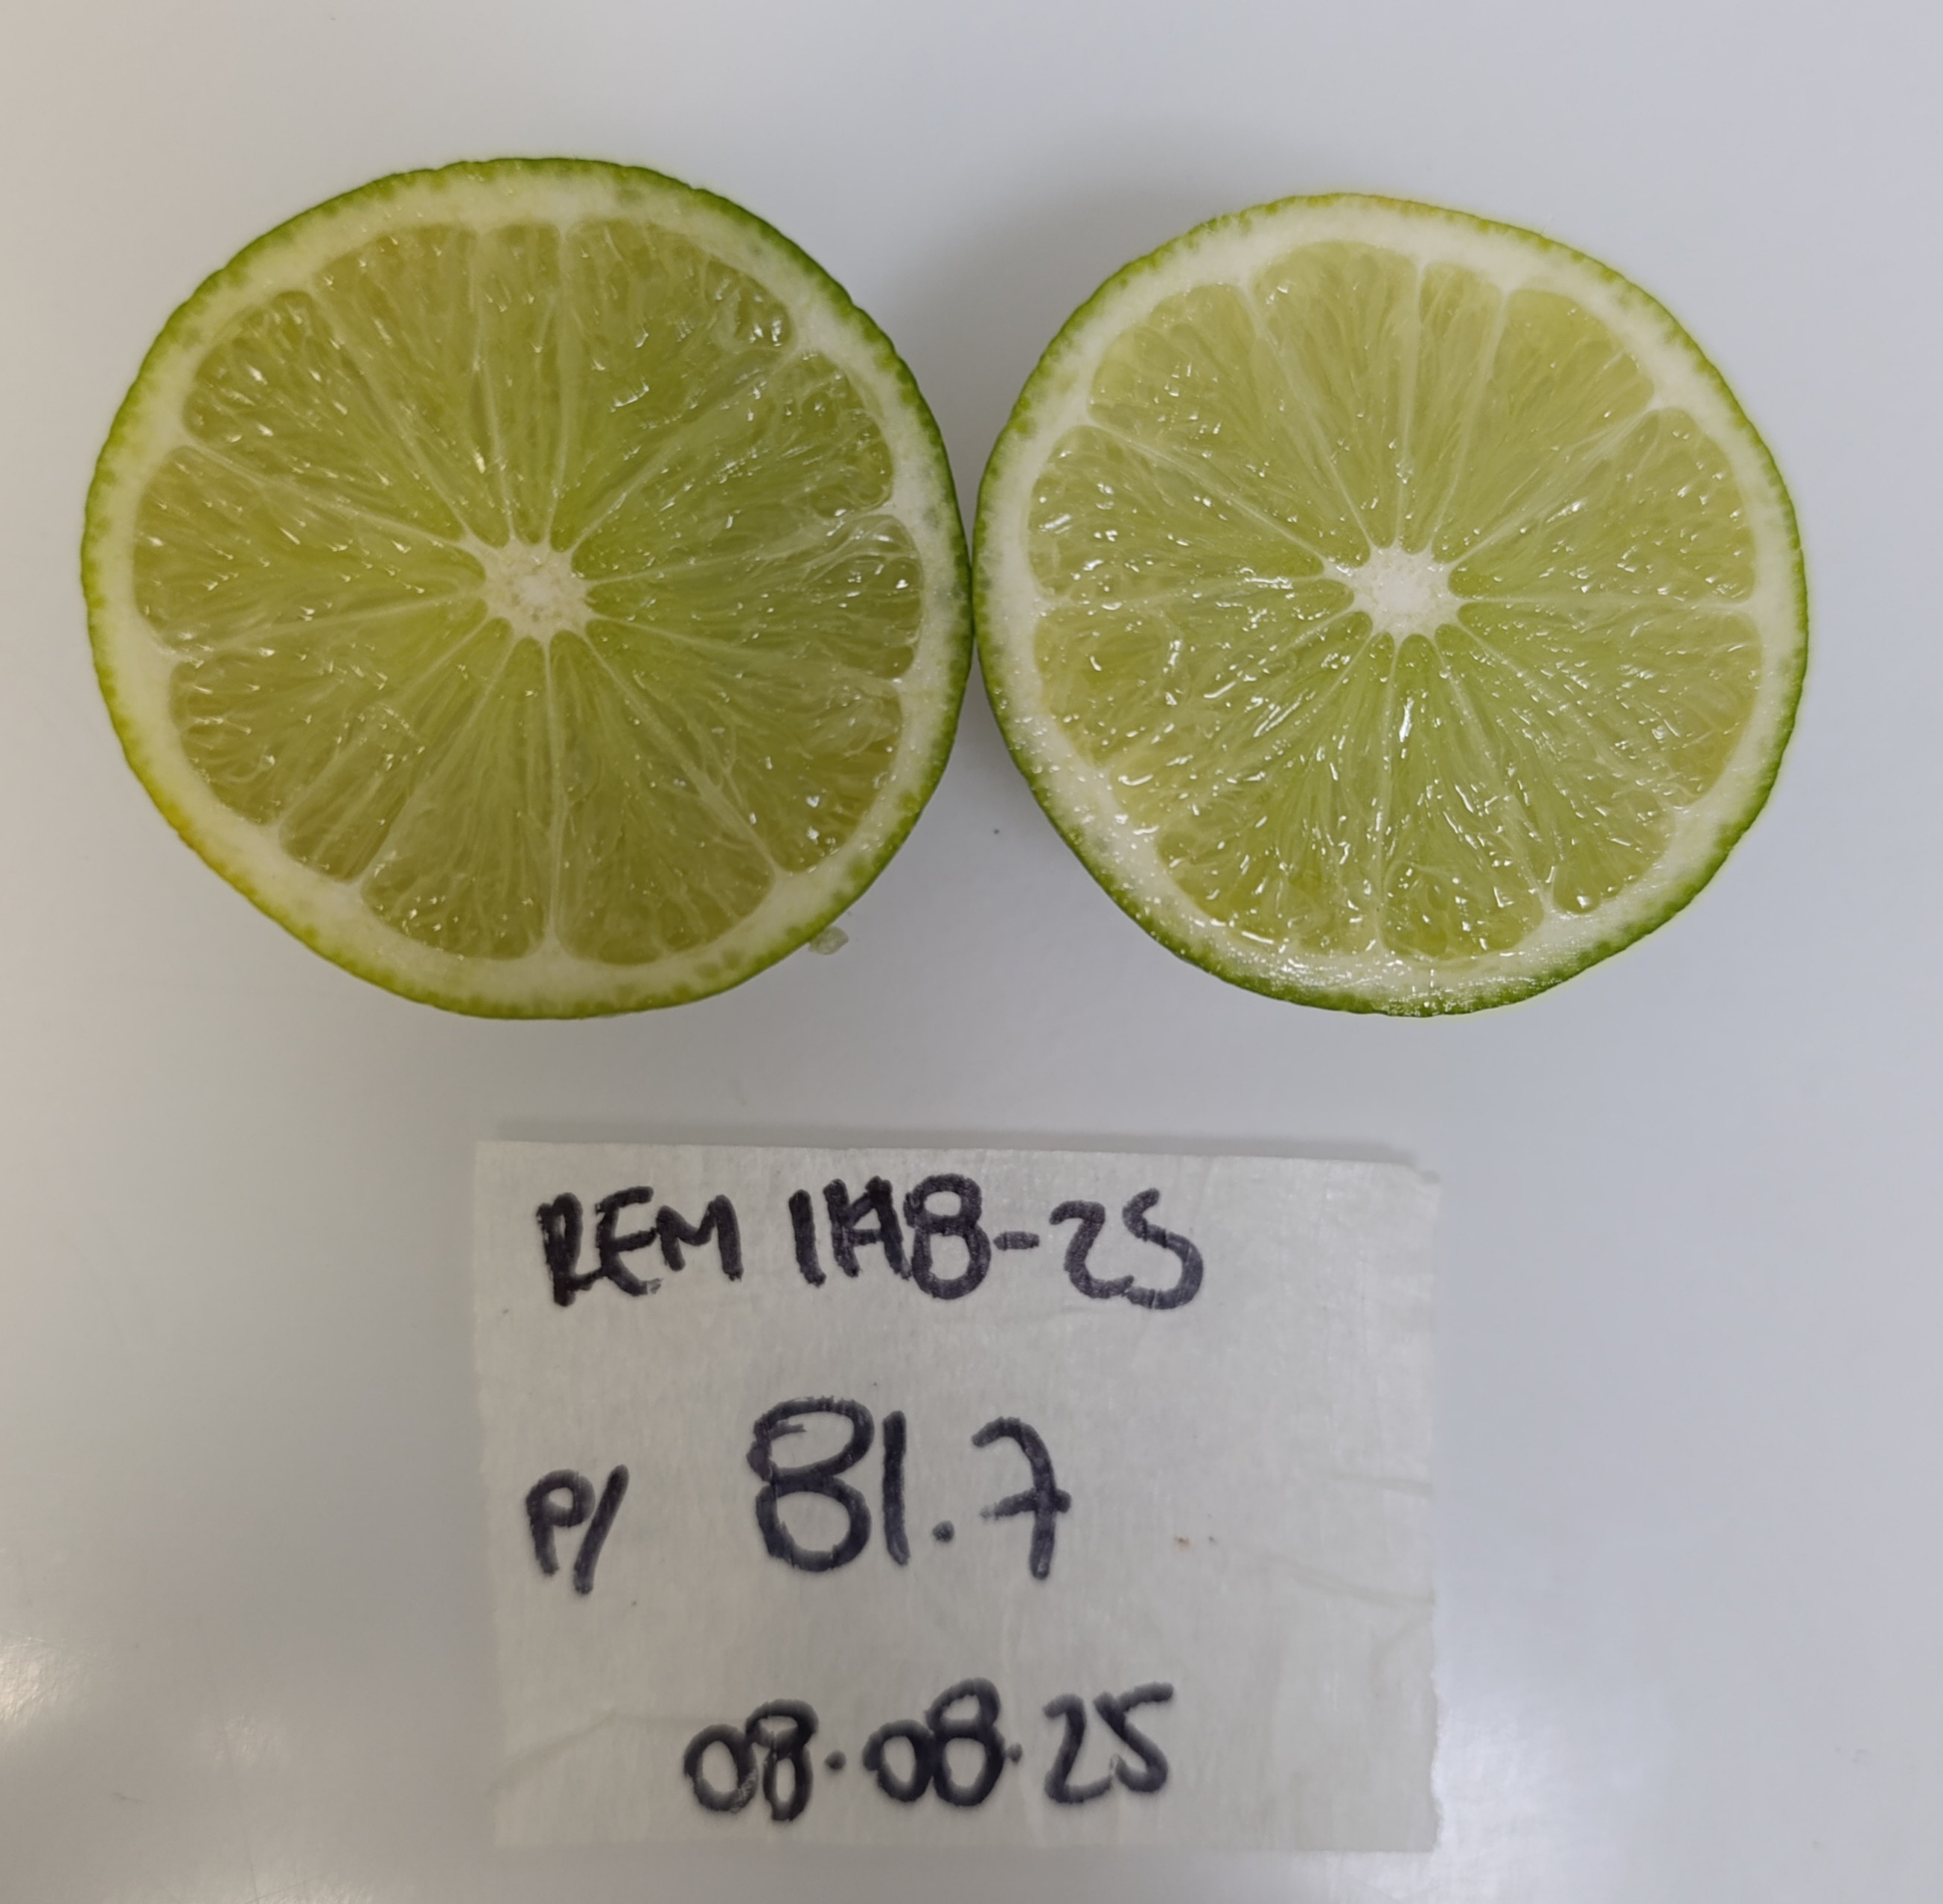 REM 1148-25
P/ 81.7
08.08.25